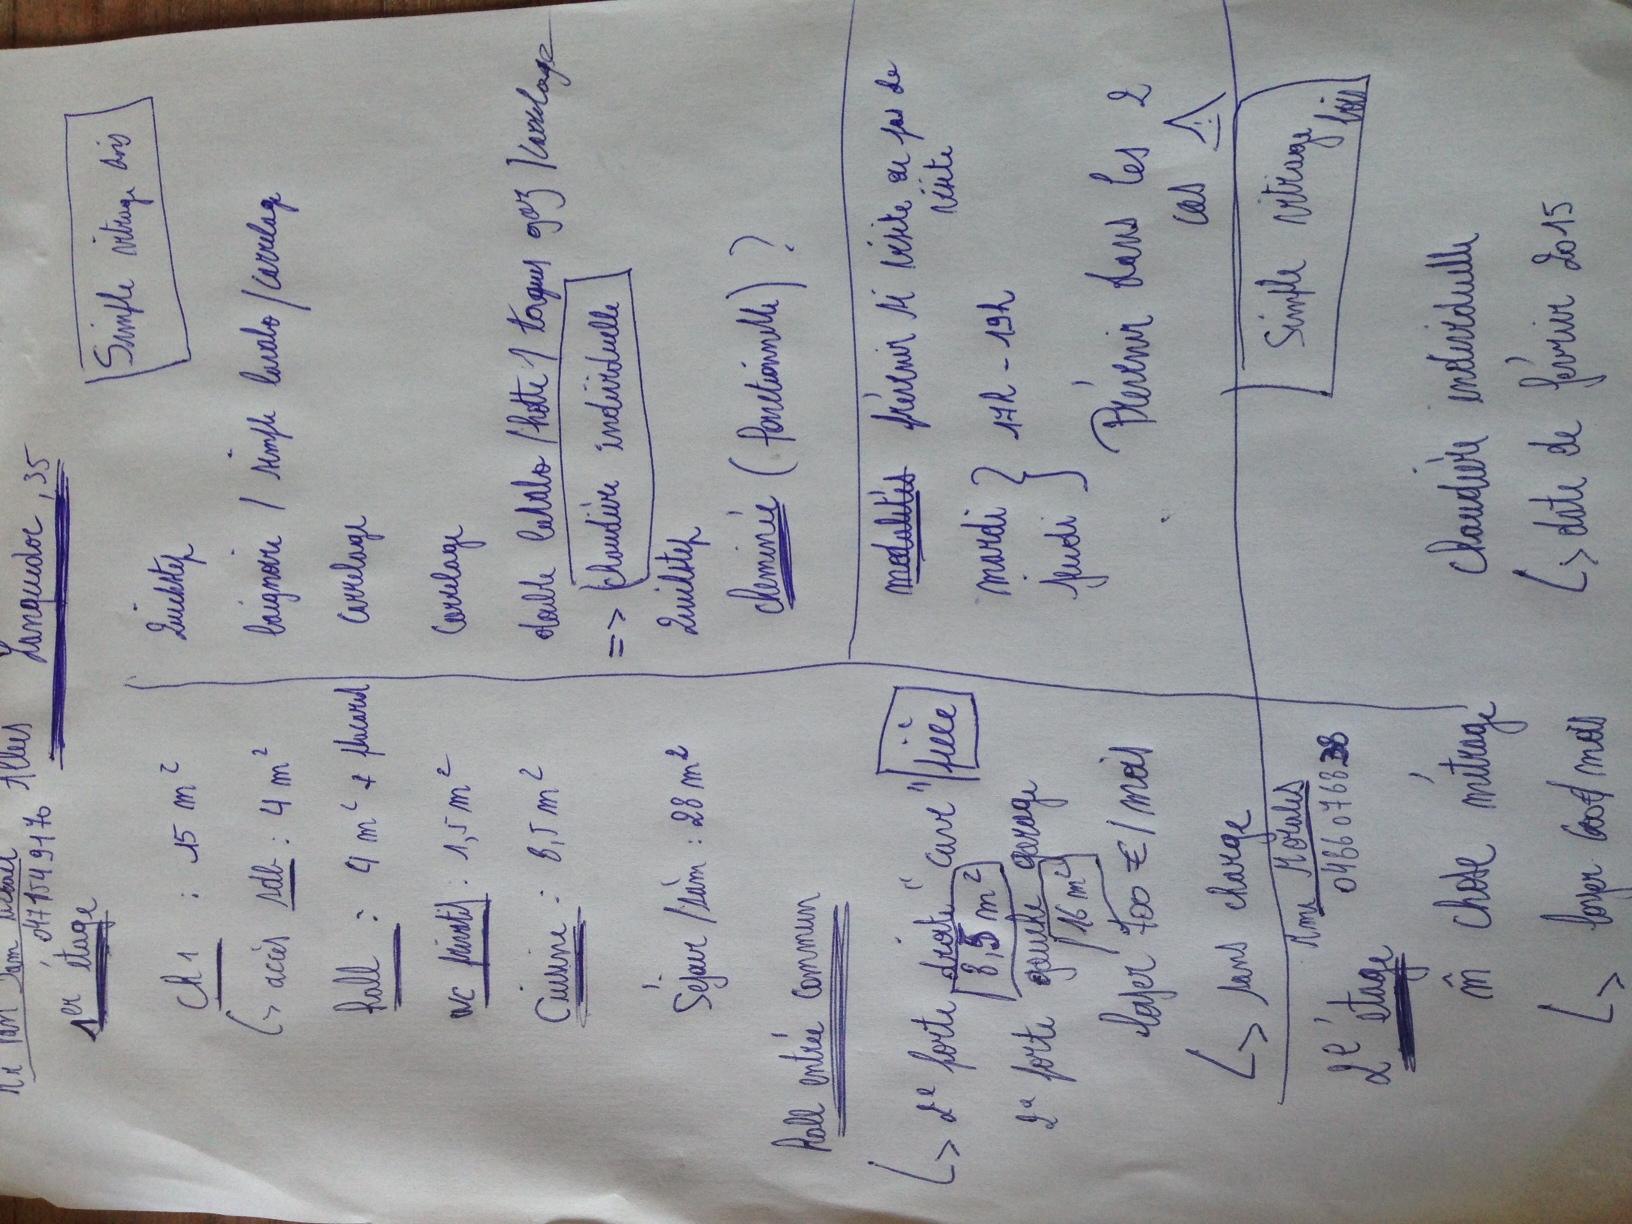 Allées Languedoc, 35
0471549170
1er étage
Simple vitrage bois
Ch 1 : 15 m² Quickstep
↳ accès sdb : 4 m² baignoire / simple lavabo / carrelage
Hall : 4 m² + placard carrelage
WC : 1,5 m² carrelage
Cuisine : 8,5 m² double lavabo / hotte / taques gaz / carrelage
=> chaudière individuelle
Séjour / : 28 m² Quickstep
cheminée (fonctionnelle) ?
Hall entrée commun
↳ 2e porte droite "cave" pièce
8,5 m²
2e porte gauche garage
16 m²
loyer 700 € / mois
↳ sans charge
modalités prévenir si visite ou pas de visite
mardi } 17h - 19h
jeudi }
Prévenir dans les 2 cas ⚠
Mme
2é étage
Simple vitrage bois
m̂ chose métrage chaudière individuelle
↳ date de février 2015
↳ loyer mois